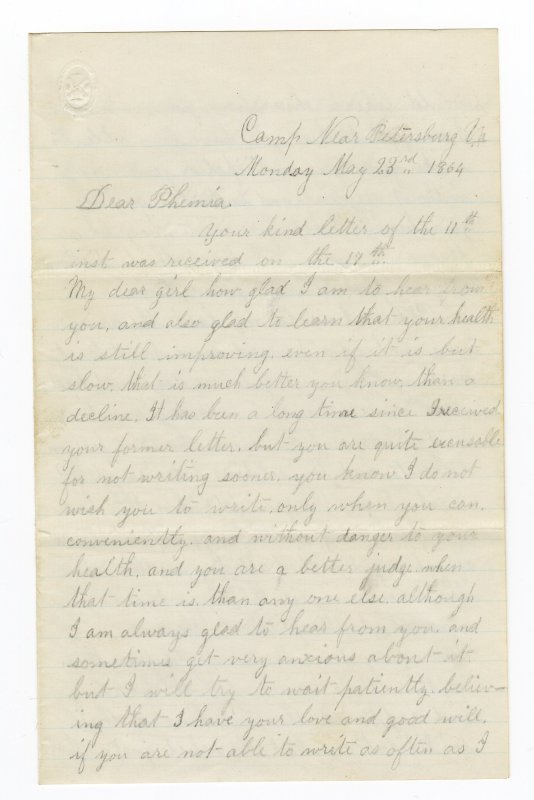 Camp Near Petersburg Va
Monday May 23rd 1864
Dear Phemia.
Your kind letter of the 11th
inst was received on the 17th.
My dear girl how glad I am to hear from
you, and also glad to learn that your health
is still improving. even if it is but
slow, that is much better you know, than a
decline. It has been a long time since I received
your former letter. but you are quite excusable
for not writing sooner. you know I do not
wish you to write, only when you can.
conveniently. and without danger to your
health. and you are a better judge when
that time is. than any one else. although
I am always glad to hear from you. and
sometimes get very anxious about it
but I will try to wait patiently. believ-
ing that I have your love and good will.
if you are not able to write as often as I